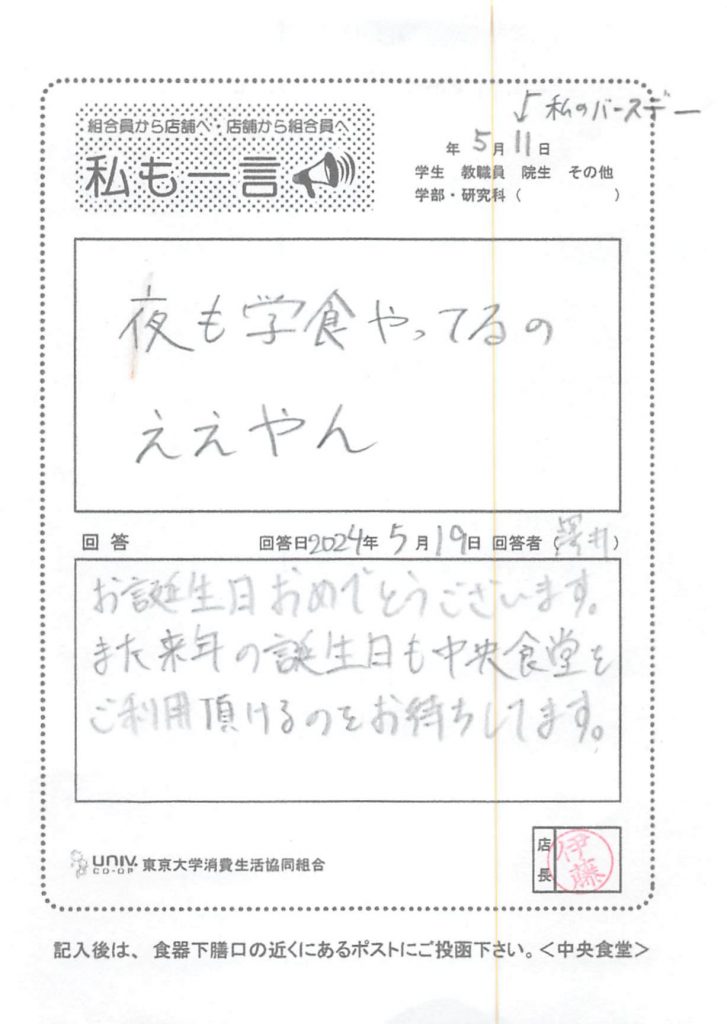 ↓私のバースデー
組合員から店舗へ・店舗から組合員へ
私も一言
年 5月 11日
学生 教職員 院生 その他
学部・研究科 (          )
夜も学食やってるの
ええやん
回答 回答日2024年 5月 19日 回答者 (澤井)
お誕生日おめでとうございます。
また来年の誕生日も中央食堂を
ご利用頂けるのをお待ちしてます。
univ. CO-OP 東京大学消費生活協同組合
店長 伊藤
記入後は、食器下膳口の近くにあるポストにご投函下さい。<中央食堂>